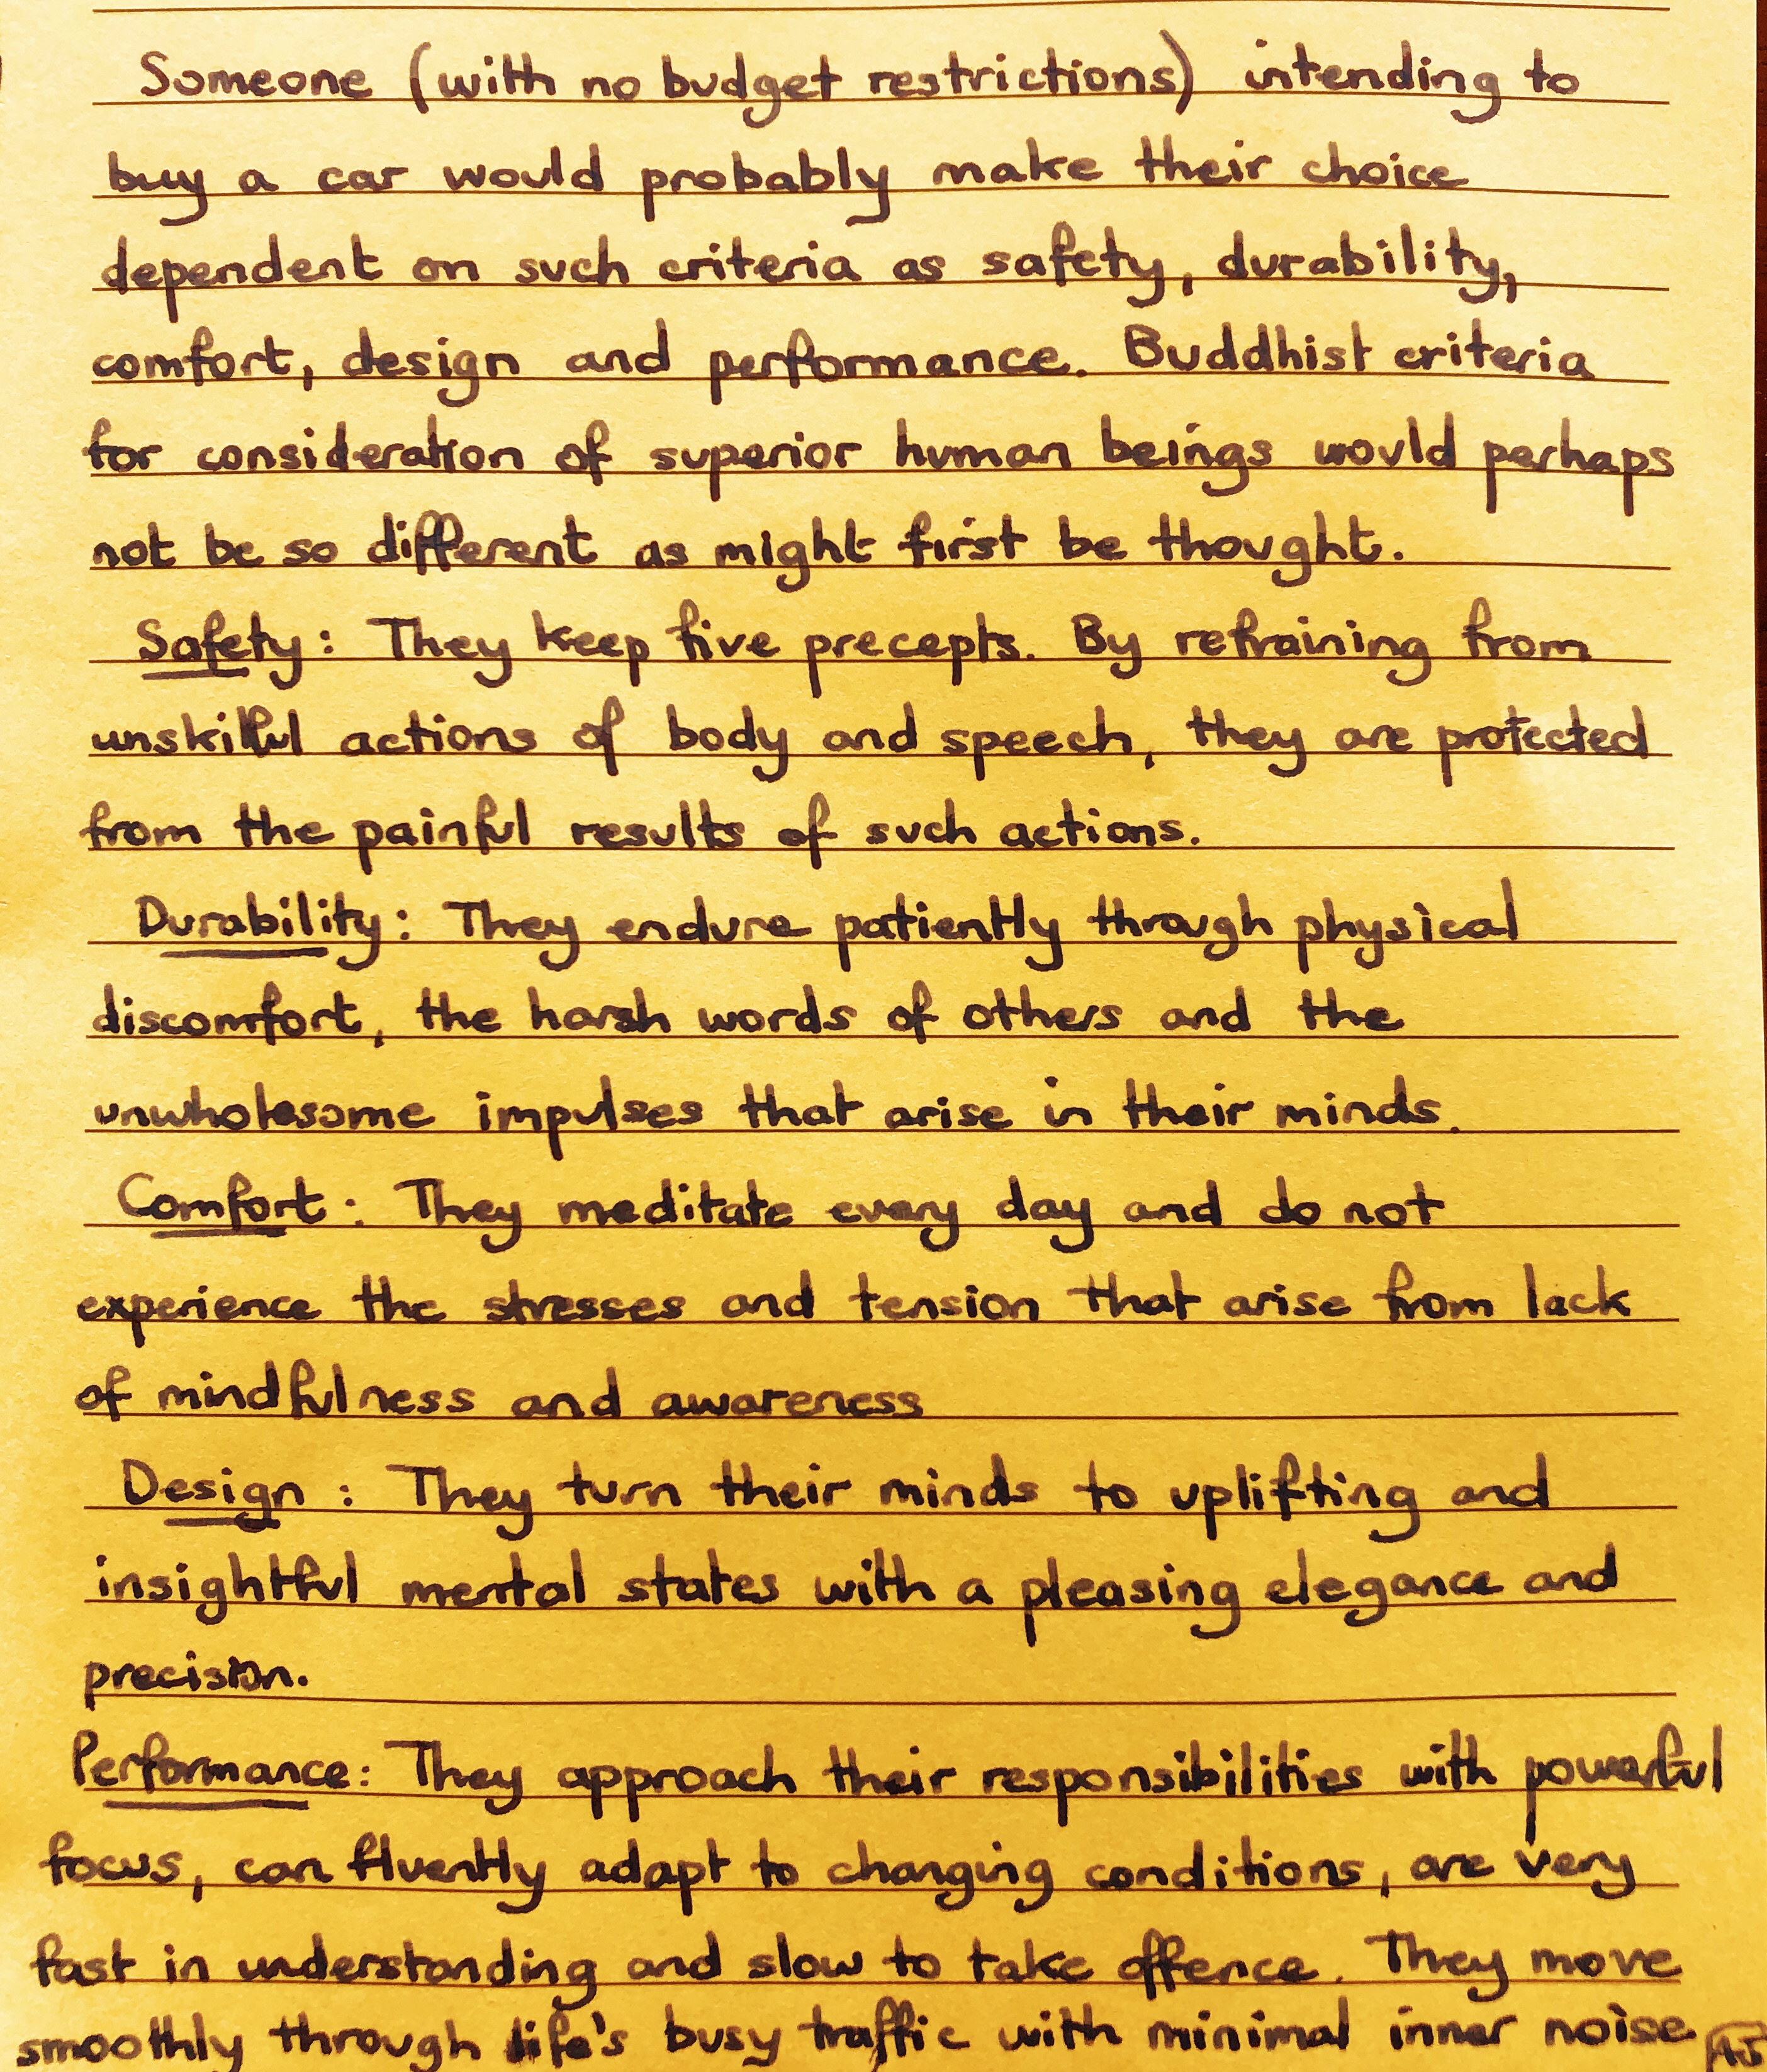 Someone (with no budget restrictions) intending to
buy a car would probably make their choice
dependent on such criteria as safety, durability,
comfort, design and performance. Buddhist criteria
for consideration of superior human beings would perhaps
not be so different as might first be thought.
Safety: They keep five precepts. By refraining from
unskilful actions of body and speech, they are protected
from the painful results of such actions.
Durability: They endure patiently through physical
discomfort, the harsh words of others and the
unwholesome impulses that arise in their minds.
Comfort: They meditate every day and do not
experience the stresses and tension that arise from lack
of mindfulness and awareness
Design: They turn their minds to uplifting and
insightful mental states with a pleasing elegance and
precision.
Performance: They approach their responsibilities with powerful
focus, can fluently adapt to changing conditions, are very
fast in understanding and slow to take offence. They move
smoothly through life's busy traffic with minimal inner noise
AJ